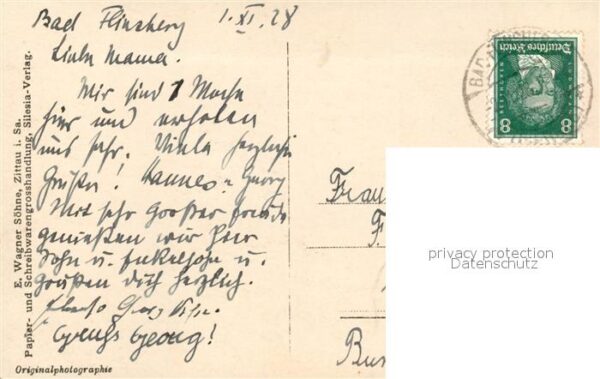 Bad Flinsberg 1. XI. 28
Liebe Mama.
Wir sind 1 Woche
hier und erholen
uns sehr. Viele herzliche
Grüße! Hannes u Georg
Mit sehr großer Freude
genießen wir hier
Sohn u. Enkelsohn u.
grüßen dich herzlich.
Georg
Gruß Georg!
Originalphotographie
E. Wagner Söhne, Zittau i. Sa.
Papier- und Schreibwarengrosshandlung. Silesia-Verlag.
Deutsches Reich
BEETHOVEN
8 8
BAD
Frau
F
Bun
privacy protection
Datenschutz